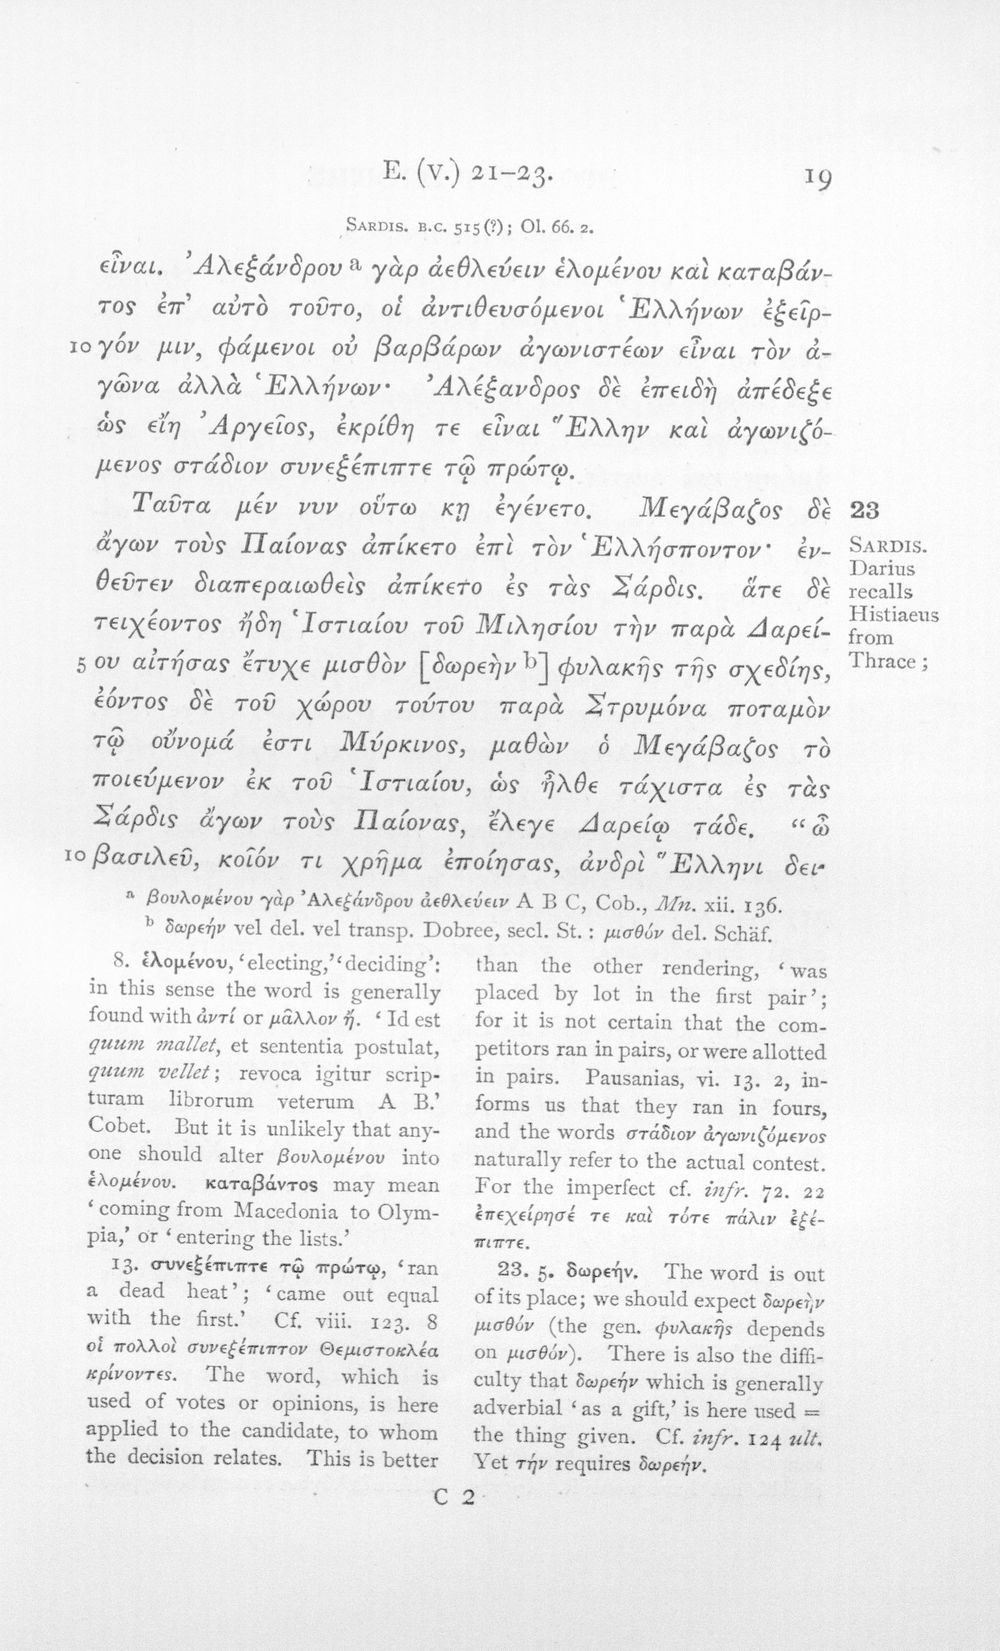 E. (V.) 21–23.
19
SARDIS. B.C. 515(?); Ol. 66. 2.
εἶναι. Ἀλεξάνδρου a γὰρ ἀεθλεύειν ἑλομένου καὶ καταβάν-
τος ἐπ’ αὐτὸ τοῦτο, οἱ ἀντιθευσόμενοι Ἑλλήνων ἐξεῖρ-
10 γόν μιν, φάμενοι οὐ βαρβάρων ἀγωνιστέων εἶναι τὸν ἀ-
γῶνα ἀλλὰ Ἑλλήνων· Ἀλέξανδρος δὲ ἐπειδὴ ἀπέδεξε
ὡς εἴη Ἀργεῖος, ἐκρίθη τε εἶναι Ἕλλην καὶ ἀγωνιζό-
μενος στάδιον συνεξέπιπτε τῷ πρώτῳ.
Ταῦτα μέν νυν οὕτω κῃ ἐγένετο. Μεγάβαζος δὲ
ἄγων τοὺς Παίονας ἀπίκετο ἐπὶ τὸν Ἑλλήσποντον· ἐν-
θεῦτεν διαπεραιωθεὶς ἀπίκετο ἐς τὰς Σάρδις. ἅτε δὲ
τειχέοντος ἤδη Ἱστιαίου τοῦ Μιλησίου τὴν παρὰ Δαρεί-
5 ου αἰτήσας ἔτυχε μισθὸν [δωρεὴν b] φυλακῆς τῆς σχεδίης,
ἐόντος δὲ τοῦ χώρου τούτου παρὰ Στρυμόνα ποταμὸν
τῷ οὔνομά ἐστι Μύρκινος, μαθὼν ὁ Μεγάβαζος τὸ
ποιεύμενον ἐκ τοῦ Ἱστιαίου, ὡς ἦλθε τάχιστα ἐς τὰς
Σάρδις ἄγων τοὺς Παίονας, ἔλεγε Δαρείῳ τάδε. “ὦ
10 βασιλεῦ, κοῖόν τι χρῆμα ἐποίησας, ἀνδρὶ Ἕλληνι δει-
23
SARDIS.
Darius
recalls
Histiaeus
from
Thrace;
a βουλομένου γὰρ Ἀλεξάνδρου ἀεθλεύειν A B C, Cob., Mn. xii. 136.
b δωρεήν vel del. vel transp. Dobree, secl. St.: μισθόν del. Schäf.
8. ἑλομένου, ‘electing,’ ‘deciding’:
in this sense the word is generally
found with ἀντί or μᾶλλον ἤ. ‘Id est
quum mallet, et sententia postulat,
quum vellet; revoca igitur scrip-
turam librorum veterum A B.’
Cobet. But it is unlikely that any-
one should alter βουλομένου into
ἑλομένου. καταβάντος may mean
‘coming from Macedonia to Olym-
pia,’ or ‘entering the lists.’
13. συνεξέπιπτε τῷ πρώτῳ, ‘ran
a dead heat’; ‘came out equal
with the first.’ Cf. viii. 123. 8
οἱ πολλοὶ συνεξέπιπτον Θεμιστοκλέα
κρίνοντες. The word, which is
used of votes or opinions, is here
applied to the candidate, to whom
the decision relates. This is better
than the other rendering, ‘was
placed by lot in the first pair’;
for it is not certain that the com-
petitors ran in pairs, or were allotted
in pairs. Pausanias, vi. 13. 2, in-
forms us that they ran in fours,
and the words στάδιον ἀγωνιζόμενος
naturally refer to the actual contest.
For the imperfect cf. infr. 72. 22
ἐπεχείρησέ τε καὶ τότε πάλιν ἐξέ-
πιπτε.
23. 5. δωρεήν. The word is out
of its place; we should expect δωρεὴν
μισθόν (the gen. φυλακῆς depends
on μισθόν). There is also the diffi-
culty that δωρεήν which is generally
adverbial ‘as a gift,’ is here used =
the thing given. Cf. infr. 124 ult.
Yet τήν requires δωρεήν.
C 2